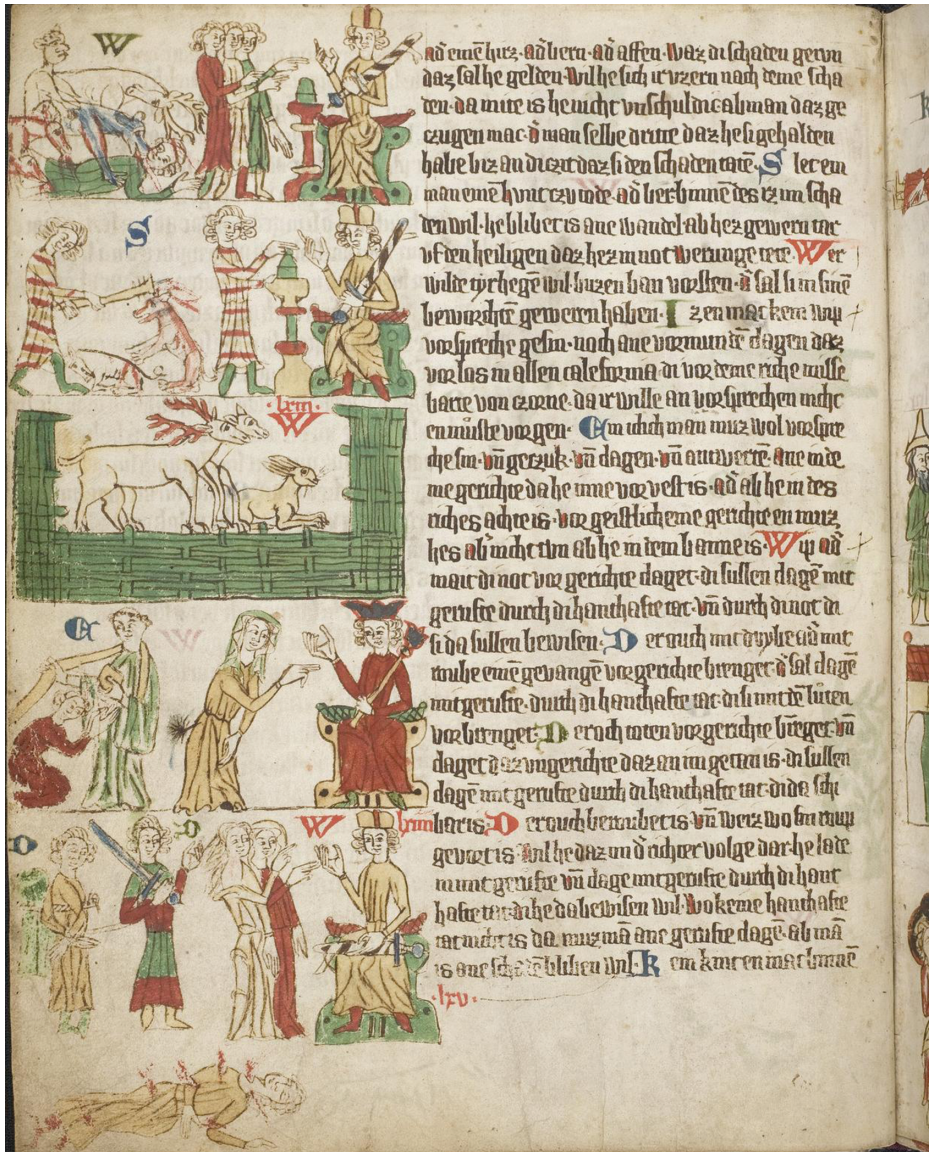 W
S
·lxiii·
W
E
W
D
D
W
lxiiii
ad̕ einē hirz· ad̕ bern· ad̕ affen· waz di schaden gerwn
daz sal he gelden· Wil he sich ir vzern nach deme scha
den· da mite is he nicht vnschuldic ab man daz ge
czugen mac· d̕ man selbe dritte daz he si gehalden
habe biz an di czit daz si den schaden tatē· S let ein
man einē hunt· ad̕ ber binnē des iz im scha
den wil· he blibet is ane wandel ab hez gewern tar
vf den heiligen daz hez in not werunge tete· Wer
wilde tyr hege wil buzen ban vorsten· d̕ sal si in sinē
beworchtē geweren haben· I z en mac kein wip
vorspreche gesin· noch ane vormundē clagen daz
vorlos in allen calefornia di vor deme riche misse
barte von czorne· da ir wille an vorsprechen nicht
en muste vorgen· E in iclich man muz wol vorspre
che sin· vn̄ geczuk· vn̄ clagen· vn̄ antwertē· ane in de
me gerichte da he inne vorvest is· ad̕ ab he in des
riches achte is· vor geistlicheme gerichte en muz
hes ab̕ nicht tun ab he in dem banne is· Wip ad̕
mait di not vor gerichte claget· di sullen clagē mit
gerufte durch di hanthafte tat· vn̄ durch di not di
si da sullen bewisen· D er ouch mit dube ad̕ mit
roube einē gevangē vor gerichte brenget· d̕ sal clagē
mit gerufte· durch di hanthafte tat· di si mit dē luten
vorbrenget· D er och toten vor gerichte brēget· vn̄
claget daz vngerichte daz an im getan is· di sullen
clagē mit gerufte durch di hanthafte tat· di da schi
bar is· D er ouch beroubet is vn̄ weiz wo sin roup
gevort is· wil he daz im d̕ richter volge dar· he lade
in mit gerufte vn̄ clage mit gerufte durch di hant
hafte tat· di he da bewisen wil· wo keine hanthafte
tat nicht is da muz mā ane gerufte clagē· ab mā
is ane schadē bliben wil· K ein kint en mac binnē
·lxv·